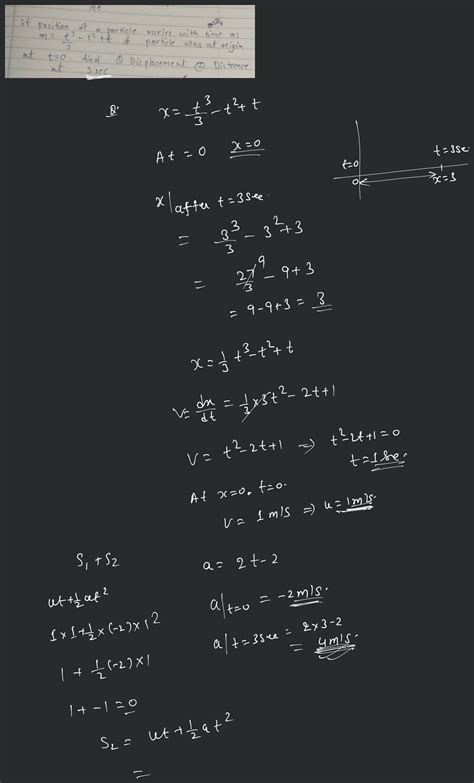 dt
If position of a particle varies with time as
x = t³/3 - t² + t & particle was at origin
at t=0 find ① Displacement ② Distance
at 3 sec
Q. x = t³/3 - t² + t
At = 0 x=0
t=0
t=3se
0
x=3
x|after t=3sec.
= 3³/3 - 3² + 3
= 27/3 9 - 9 + 3
= 9-9+3 = 3
x = 1/3 t³ - t² + t
V = dx/dt = 1/3 × 3t² - 2t + 1
V = t² - 2t + 1 ⇒ t² - 2t + 1 = 0
t = 1 se.
At x=0, t=0.
V = 1 m/s ⇒ u = 1m/s
S₁ + S₂
a = 2t - 2
ut + ½at²
a|t=0 = -2m/s.
1×1+½×(-2)×1²
a|t=3sec = 2×3-2
= 4m/s.
1 + ½(-2)×1
1 + -1 = 0
S₂ = ut + ½at²
=